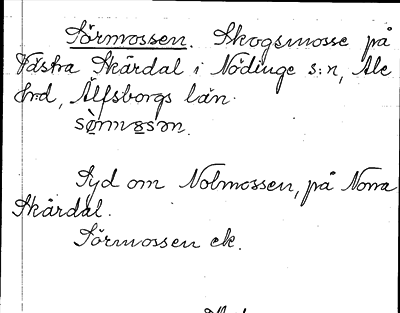 Sörmossen. Skogsmosse på
Västra Skårdal i Nödinge s:n, Ale
hrd, Älfsborgs län.
Syd om Nolmossen, på Norra
Skårdal.
Sörmossen ek.